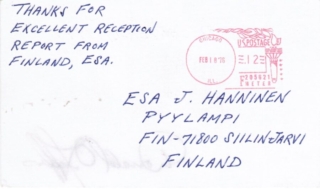 THANKS FOR
EXCELLENT RECEPTION
REPORT FROM
FINLAND, ESA.
U.S. POSTAGE
FEB 18
.12
ESA J. HANNINEN
PYYLAMPI
FIN-71800 SIILINJARVI
FINLAND